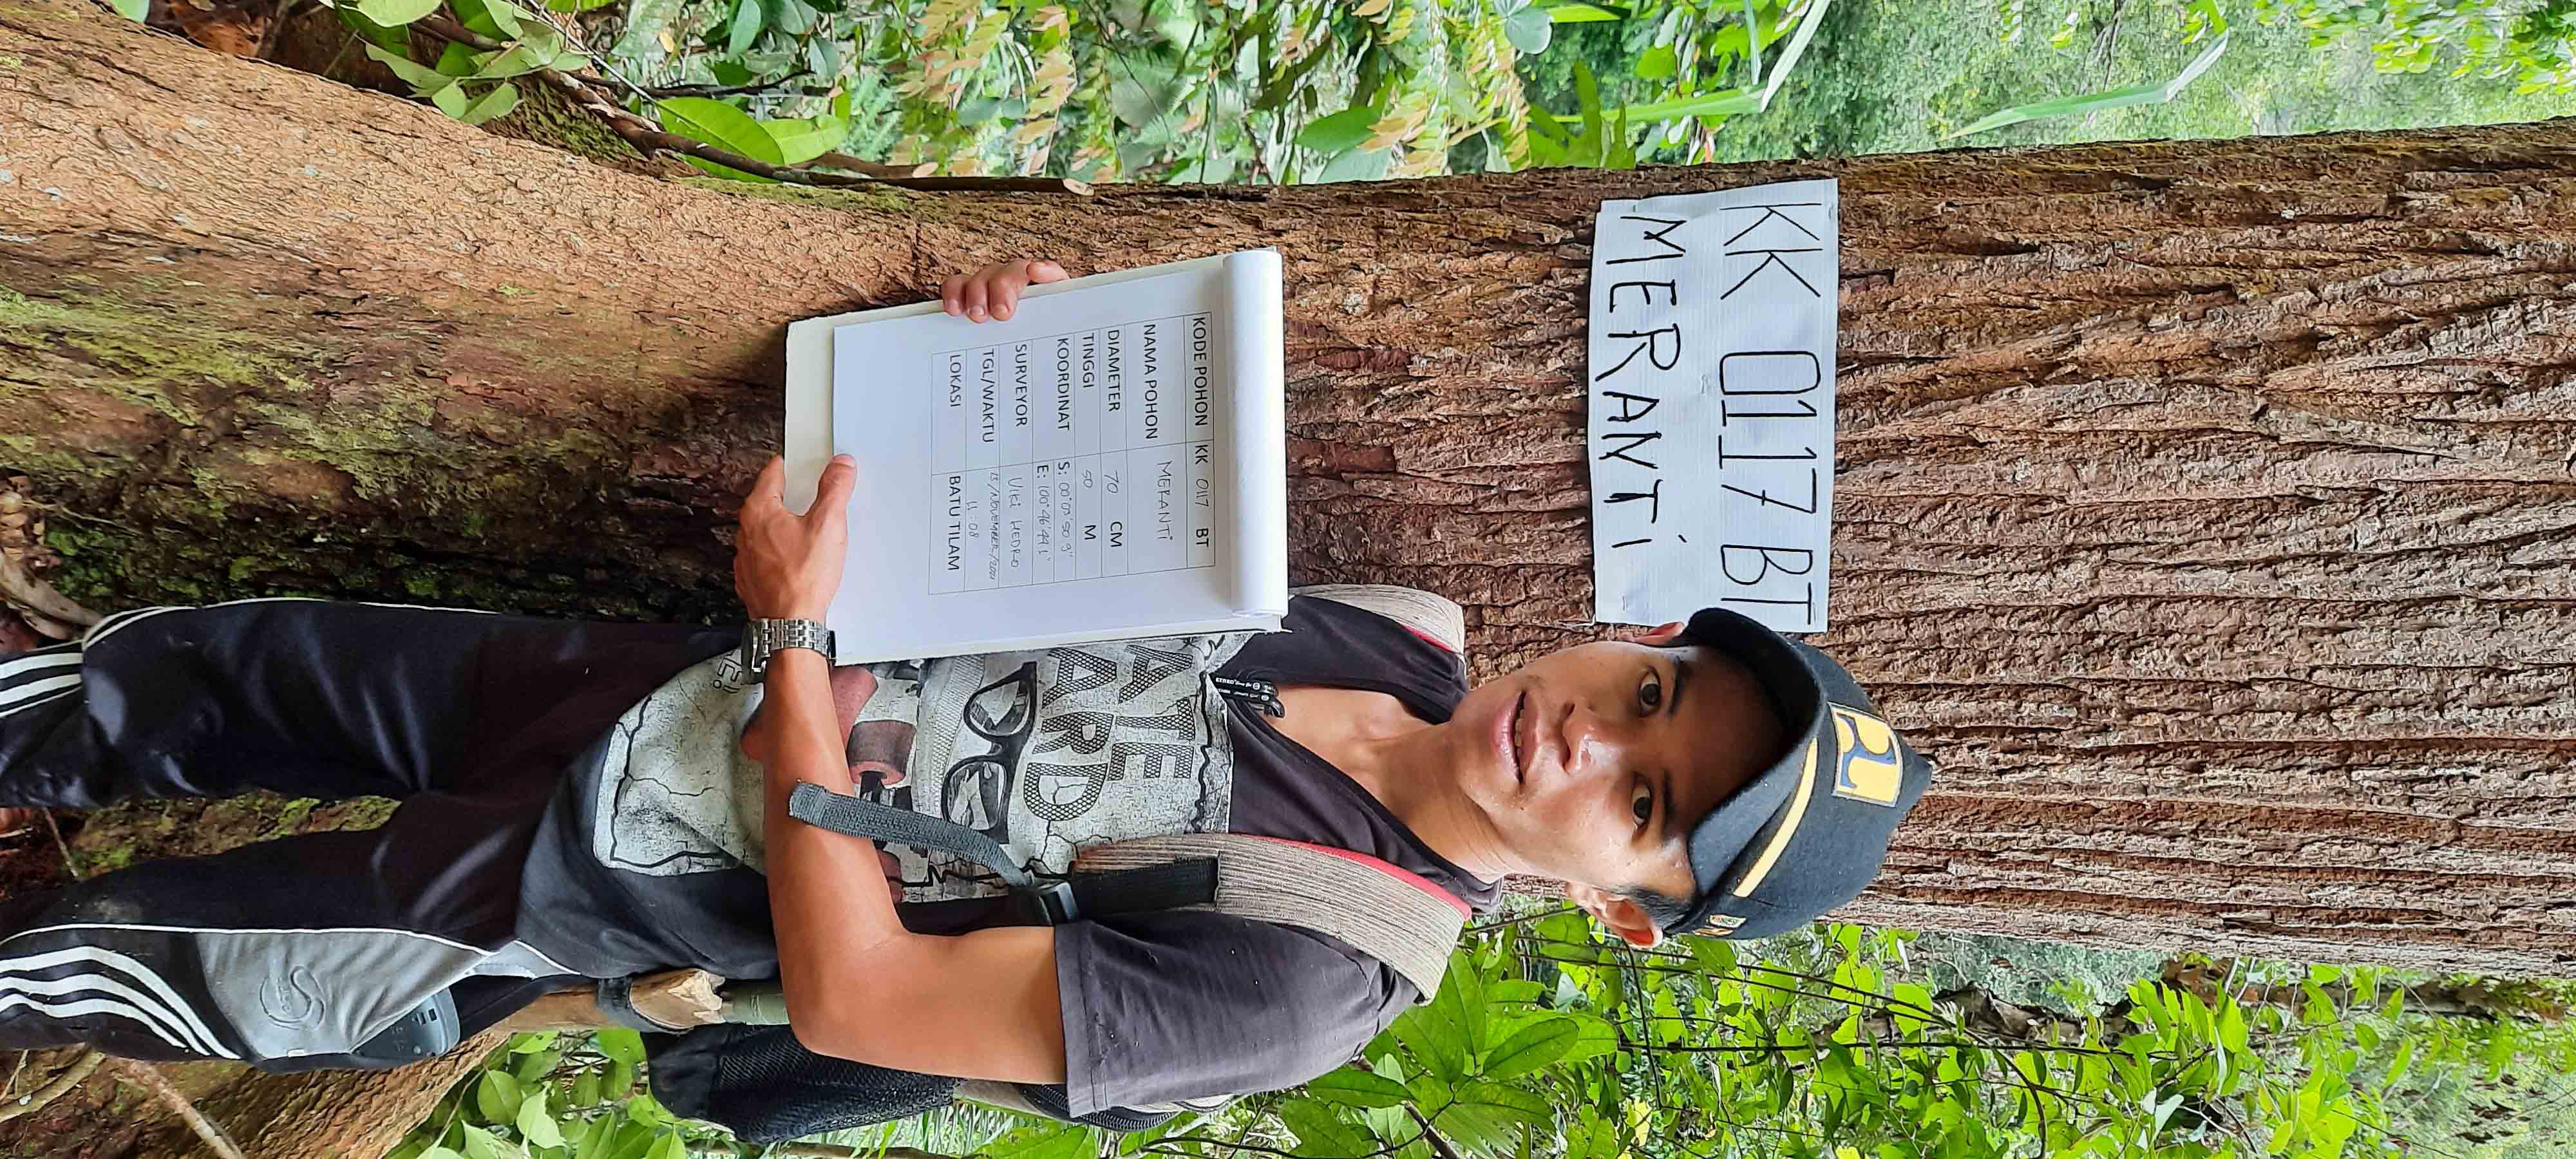 KK 0117 BT
MERANTI
KODE POHON KK 0117 BT
NAMA POHON MERANTI
DIAMETER 70 CM
TINGGI 50 M
KOORDINAT S: 00°03'50 9"
E: 100°46'49 1"
SURVEYOR VIKI HEDRO
TGL/WAKTU 13/NOVEMBER/2021
11 08
LOKASI BATU TILAM
ATE
ARD